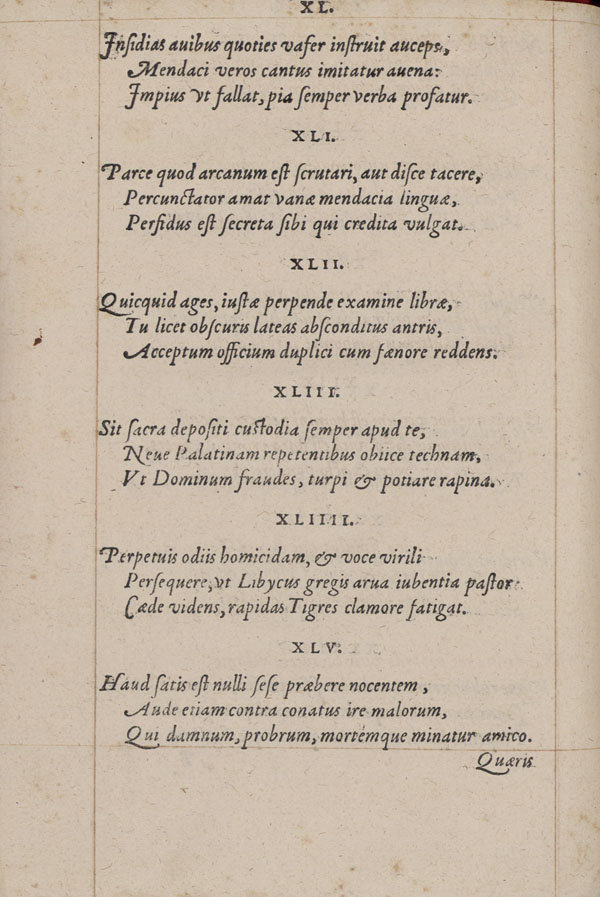 XL.
Insidias auibus quoties vafer instruit auceps,
Mendaci veros cantus imitatur auena:
Impius vt fallat, pia semper verba profatur.
XLI.
Parce quod arcanum est scrutari, aut disce tacere,
Percunctator amat vanæ mendacia linguæ,
Perfidus est secreta sibi qui credita vulgat.
XLII.
Quicquid ages, iustæ perpende examine libræ,
Tu licet obscuris lateas absconditus antris,
Acceptum officium duplici cum fænore reddens.
XLIII.
Sit sacra depositi custodia semper apud te,
Neue Palatinam repetentibus obiice technam,
Vt Dominum fraudes, turpi & potiare rapina.
XLIIII.
Perpetuis odiis homicidam, & voce virili
Persequere, vt Libycus gregis arua iubentia pastor
Cæde videns, rapidas Tigres clamore fatigat.
XLV.
Haud satis est nulli sese præbere nocentem,
Aude etiam contra conatus ire malorum,
Qui damnum, probrum, mortémque minatur amico.
Quæris